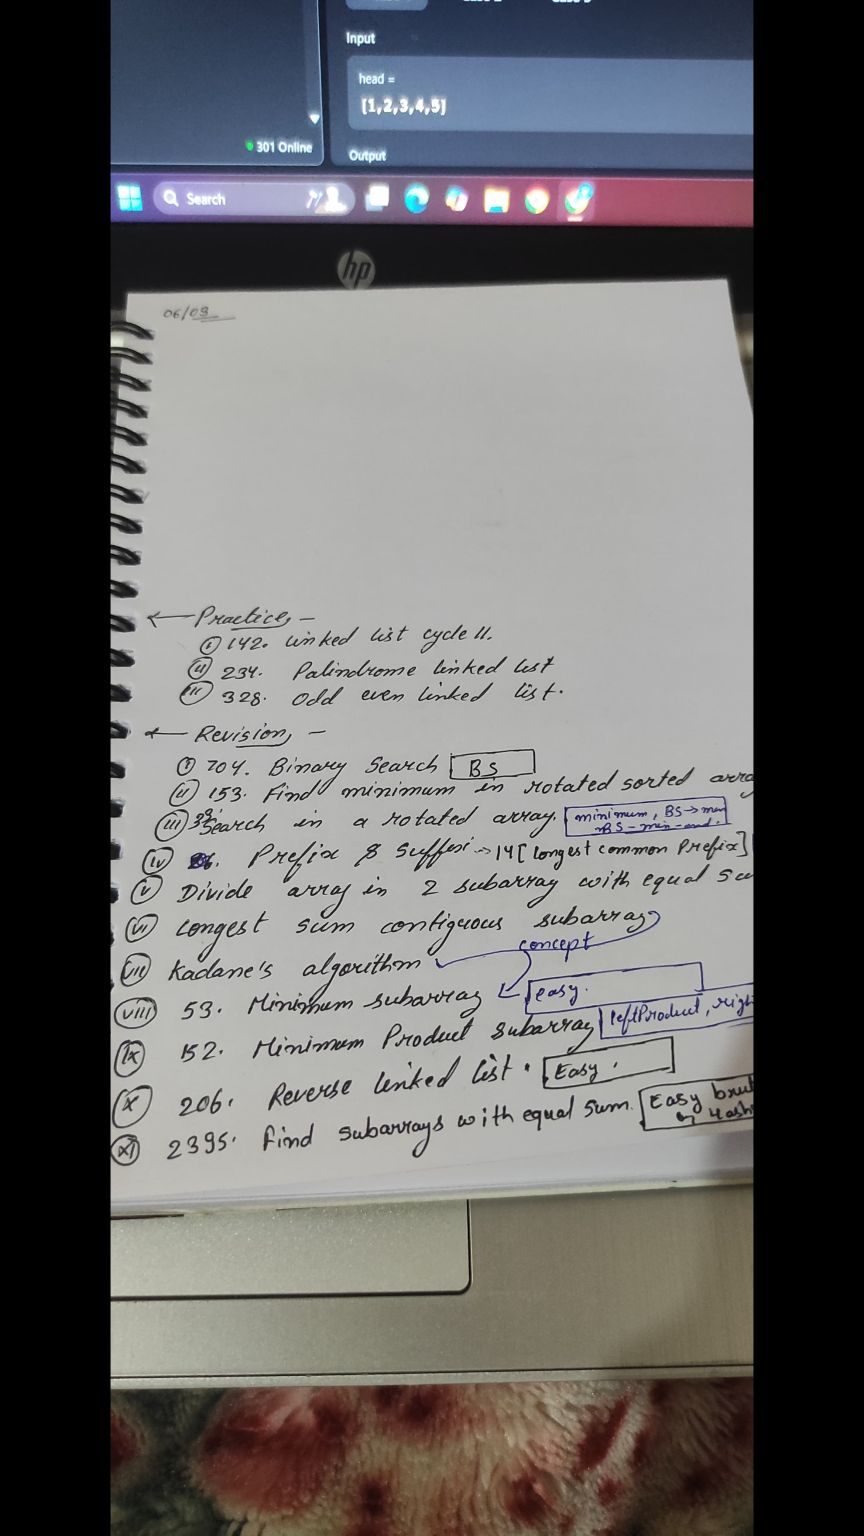 Input
head =
[1,2,3,4,5]
301 Online
Output
Search
hp
06/03
Practice, -
(i) 142. Linked list cycle II.
(ii) 234. Palindrome linked list
(iii) 328. Odd even linked list.
Revision, -
(i) 704. Binary Search BS
(ii) 153. Find minimum in rotated sorted arra
(iii) 33. Search in a rotated array. minimum, BS→min
BS-min-end.
(iv) Prefix & Suffix → 14[longest common Prefix]
(v) Divide array in 2 subarray with equal su
(vi) Longest sum contiguous subarray
concept
(vii) Kadane's algorithm
(viii) 53. Minimum subarray easy.
(ix) 152. Minimum Product subarray leftProduct, righ
(x) 206. Reverse linked list. Easy.
(xi) 2395. Find subarrays with equal sum. Easy brut